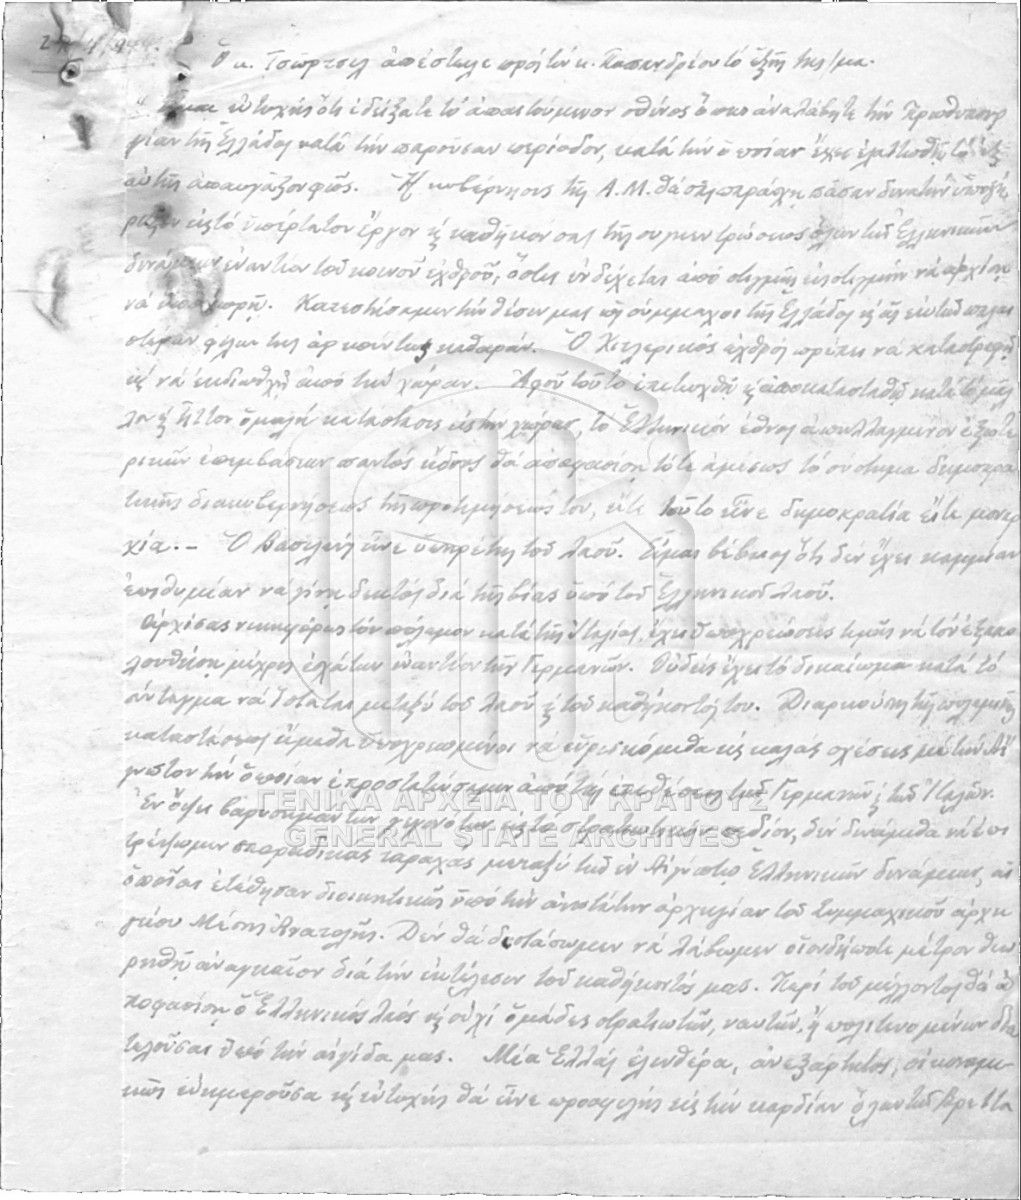 27/4/944.
Ὁ κ. Τσῶρτσιλ ἀπέστειλε πρός τόν κ. Παπανδρέου τό ἑξῆς τηλ/μα.
"Εἶμαι εὐτυχής ὅτι ἐδείξατε τό ἀπαιτούμενον σθένος ὅπως ἀναλάβητε τήν Πρωθυπουρ
γίαν τῆς Ἑλλάδος κατά τήν παροῦσαν περίοδον, κατά τήν ὁποίαν ἔχει ἐλαττωθῆ τό ἐξ
αὐτῆς ἀπαυγάζον φῶς. Ἡ κυβέρνησις τῆς Α.Μ. θά συμπαράσχη πᾶσαν δυνατήν ὑποστή
ριξιν εἰς τό ὑπέρτατον ἔργον κ καθῆκον σας τῆς συγκεντρώσεως ὅλων τῶν Ἑλληνικῶν
δυνάμεων ἐναντίον τοῦ κοινοῦ ἐχθροῦ, ὅστις ἐνδέχεται ἀπό στιγμῆς εἰς στιγμήν νά ἀρχίση
νά ὑποχωρῆ. Κατεστήσαμεν τήν θέσιν μας ὡς σύμμαχοι τῆς Ἑλλάδος κ ὡς ἐκ τῶν παλαι
οτέρων φίλων της ἀρκούντως καθαράν. Ὁ Χιτλερικός ἐχθρός πρέπει νά καταστραφῆ
κ νά ἐκδιωχθῆ ἀπό τήν χώραν. Ἀφοῦ τοῦτο ἐπιτευχθῆ κ ἀποκατασταθῆ κατά τό μᾶλ
λον κ ἧττον ὁμαλή κατάστασις εἰς τήν χώραν, τό Ἑλληνικόν ἔθνος ἀπηλλαγμένον ἐξωτε
ρικῶν ἐπεμβάσεων παντός εἴδους θά ἀποφασίση τότε ἀμέσως τό σύστημα δημοκρα
τικῆς διακυβερνήσεως τῆς προτιμήσεώς του, εἴτε τοῦτο εἶνε δημοκρατία εἴτε μοναρ
χία.– Ὁ Βασιλεύς εἶνε ὑπηρέτης τοῦ λαοῦ. Εἶμαι βέβαιος ὅτι δέν ἔχει καμμίαν
ἐπιθυμίαν νά γίνη δεκτός διά τῆς βίας ὑπό τοῦ Ἑλληνικοῦ λαοῦ.
Ἀρχίσας νικηφόρως τόν πόλεμον κατά τῆς Ἰταλίας, ἔχει ὑποχρεώσεις τιμῆς νά τόν ἐξακο
λουθήση μέχρις ἐσχάτων ἐναντίον τῶν Γερμανῶν. Οὐδείς ἔχει τό δικαίωμα κατά τό
σύνταγμα νά ἵσταται μεταξύ τοῦ λαοῦ κ τοῦ καθήκοντός του. Διαρκούσης τῆς πολεμικῆς
καταστάσεως εἴμεθα ὑποχρεωμένοι νά εὑρισκόμεθα εἰς καλάς σχέσεις μέ τήν Αἴ
γυπτον τήν ὁποίαν ἐπροστατεύσαμεν ἀπό τάς ἐπιθέσεις τῶν Γερμανῶν κ τῶν Ἰταλῶν.
Ἐν ὄψει βαρυσημάντων γεγονότων εἰς τό στρατιωτικόν πεδίον, δέν δυνάμεθα νά ἐπι
τρέψωμεν σποραδικάς ταραχάς μεταξύ τῶν ἐν Αἰγύπτῳ Ἑλληνικῶν δυνάμεων, αἱ
ὁποῖαι ἐτέθησαν διοικητικῶς ὑπό τήν ἀνωτάτην ἀρχηγίαν τοῦ Συμμαχικοῦ ἀρχη
γείου Μέσης Ἀνατολῆς. Δέν θά διστάσωμεν νά λάβωμεν οἱονδήποτε μέτρον θεω
ρηθῆ ἀναγκαῖον διά τήν ἐκτέλεσιν τοῦ καθήκοντός μας. Περί τοῦ μέλλοντος θά ἀ
ποφασίση ὁ Ἑλληνικός λαός κ οὐχί ὁμάδες στρατιωτῶν, ναυτῶν, ἤ πολιτευομένων δια
τελοῦσαι ὑπό τήν αἰγίδα μας. Μία Ἑλλάς ἐλευθέρα, ἀνεξάρτητος, οἰκονομι
κῶς εὐημεροῦσα κ εὐτυχής θά εἶνε προσφιλής εἰς τήν καρδίαν ὅλων τῶν Βρεττα
ΓΕΝΙΚΑ ΑΡΧΕΙΑ ΤΟΥ ΚΡΑΤΟΥΣ
GENERAL STATE ARCHIVES